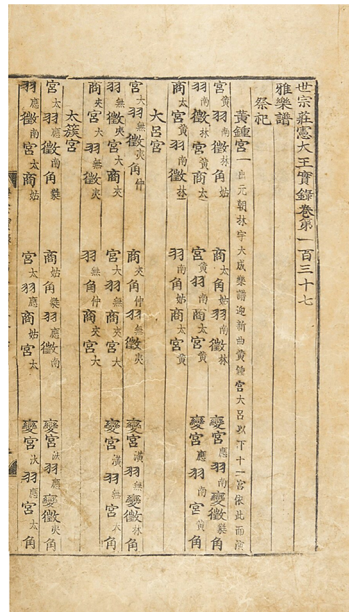 世宗莊憲大王實錄卷第一百三十七
雅樂譜
祭祀
黃鍾宮一自元朝林宇大成樂譜迎新曲黃鍾宮大呂以下十一宮依此而演
宮黃羽南徵林角姑 商太角姑羽南徵林 變宮應羽南變徵蕤角
羽南徵林宮黃商太 宮黃羽南商太宮黃 變宮應羽南宮黃角
商太宮黃羽南徵林 羽南角姑商太宮黃
大呂宮
宮大羽無徵夷角仲 商夾角仲羽無徵夷 變宮潢羽無變徵林角
羽無徵夷宮大商夾 宮大羽無商夾宮大 變宮潢羽無宮大角
商夾宮大羽無徵夷 羽無角仲商夾宮大
太簇宮
宮太羽應徵南角蕤 商姑角蕤羽應徵南 變宮汰羽應變徵夷角
羽應徵南宮太商姑 宮太羽應商姑宮太 變宮汰羽應宮太角